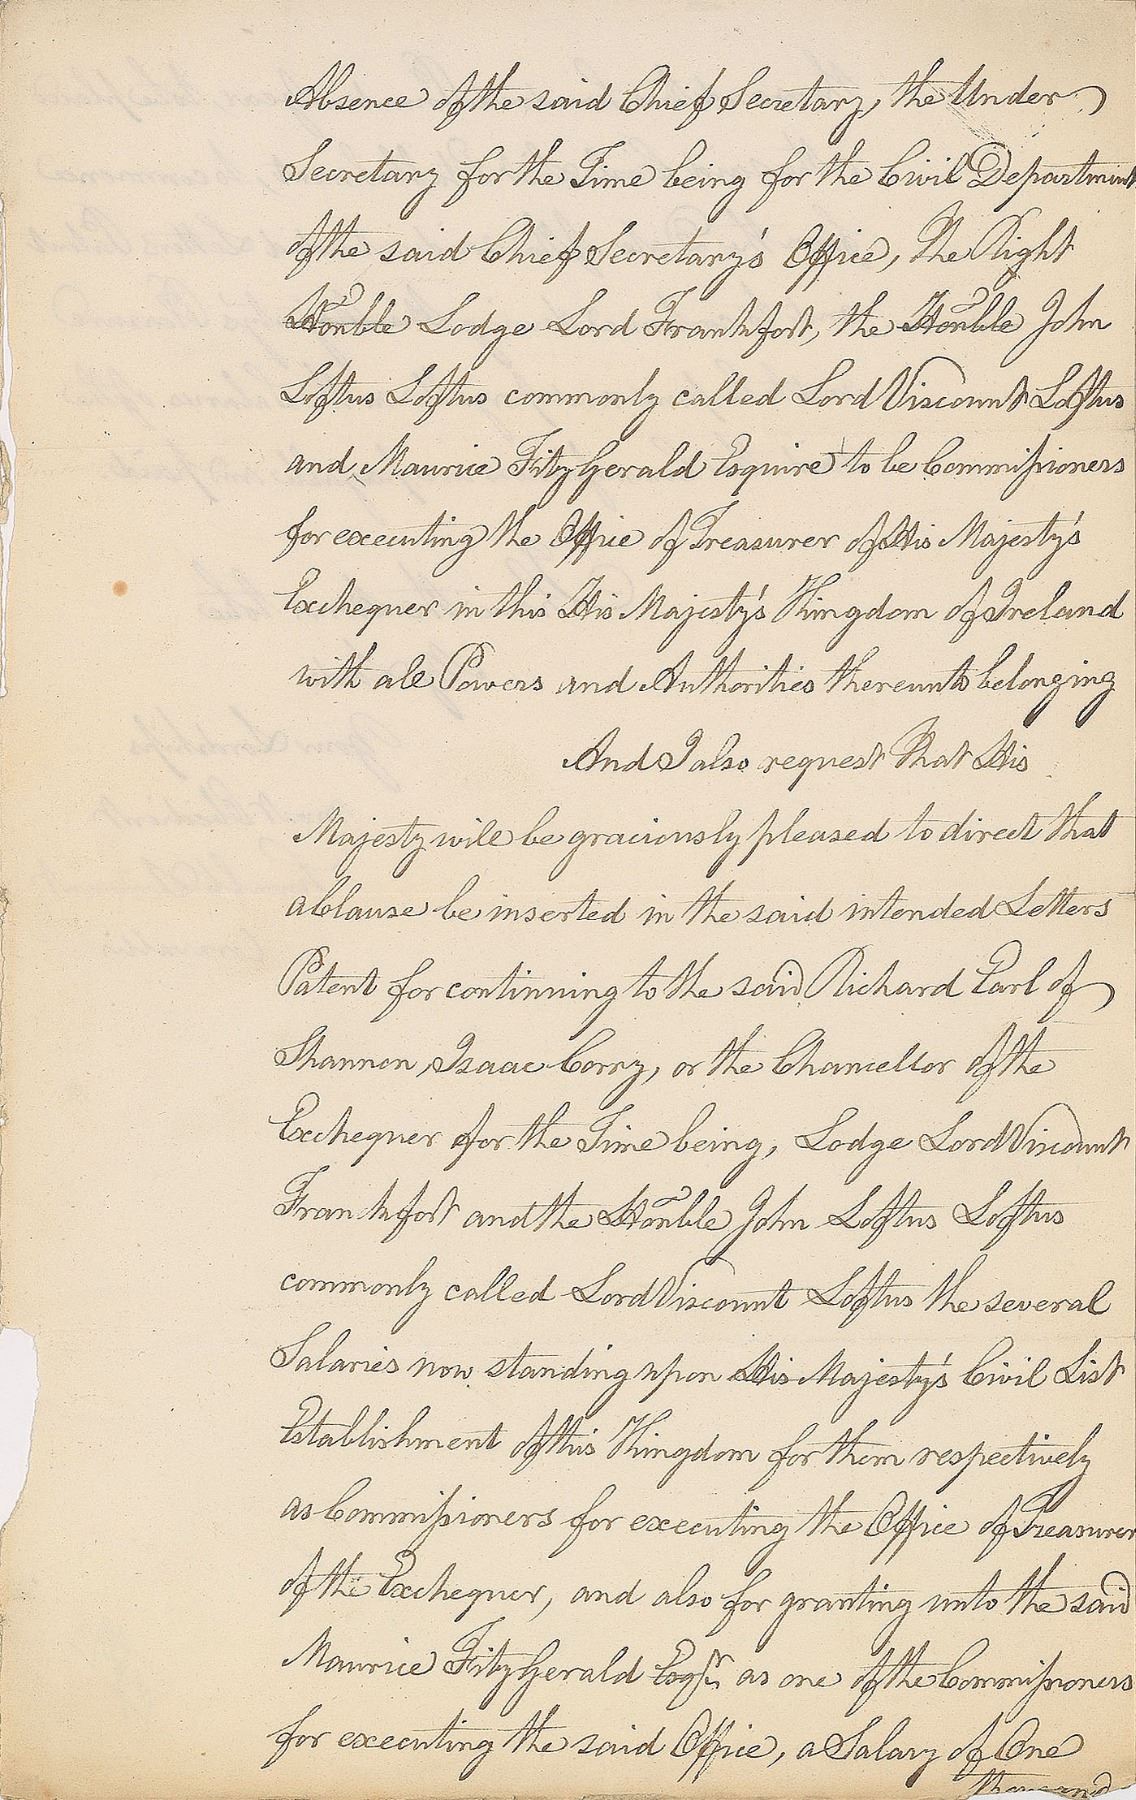 Absence of the said Chief Secretary, the Under
Secretary for the Time being for the Civil Department
of the said Chief Secretary's Office, The Right
Honble Lodge Lord Frankfort, the Honble John
Loftus Loftus commonly called Lord Viscount Loftus
and Maurice FitzGerald Esquire to be Commissioners
for executing the Office of Treasurer of His Majesty's
Exchequer in this His Majesty's Kingdom of Ireland
with all Powers and Authorities thereunto belonging
And I also request that His
Majesty will be graciously pleased to direct that
a Clause be inserted in the said intended Letters
Patent for continuing to the said Richard Earl of
Shannon, Isaac Corry, or the Chancellor of the
Exchequer for the Time being, Lodge Lord Viscount
Frankfort and the Honble John Loftus Loftus
commonly called Lord Viscount Loftus the several
Salaries now standing upon His Majesty's Civil List
Establishment of this Kingdom for them respectively
as Commissioners for executing the Office of Treasurer
of the Exchequer, and also for granting unto the said
Maurice FitzGerald Esqr. as one of the Commissioners
for executing the said Office, a Salary of One
thousand